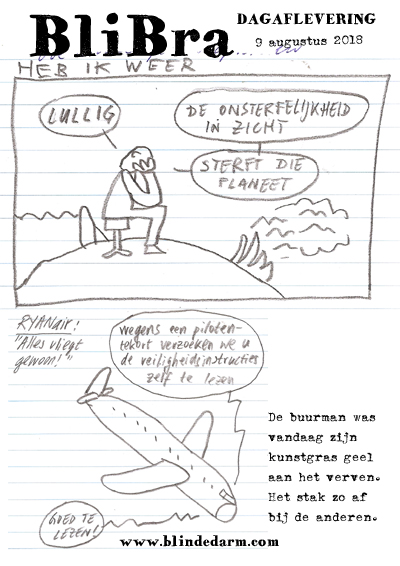 BliBra
DAGAFLEVERING
9 augustus 2018
HEB IK WEER
LULLIG
DE ONSTERFELIJKHEID
IN ZICHT
STERFT DIE
PLANEET
RYANair!
"Alles vliegt
gewoon!"
wegens een piloten-
tekort verzoeken we u
de veiligheidsinstructies
zelf te lezen
GOED TE
LEZEN!
De buurman was
vandaag zijn
kunstgras geel
aan het verven.
Het stak zo af
bij de anderen.
www.blindedarm.com